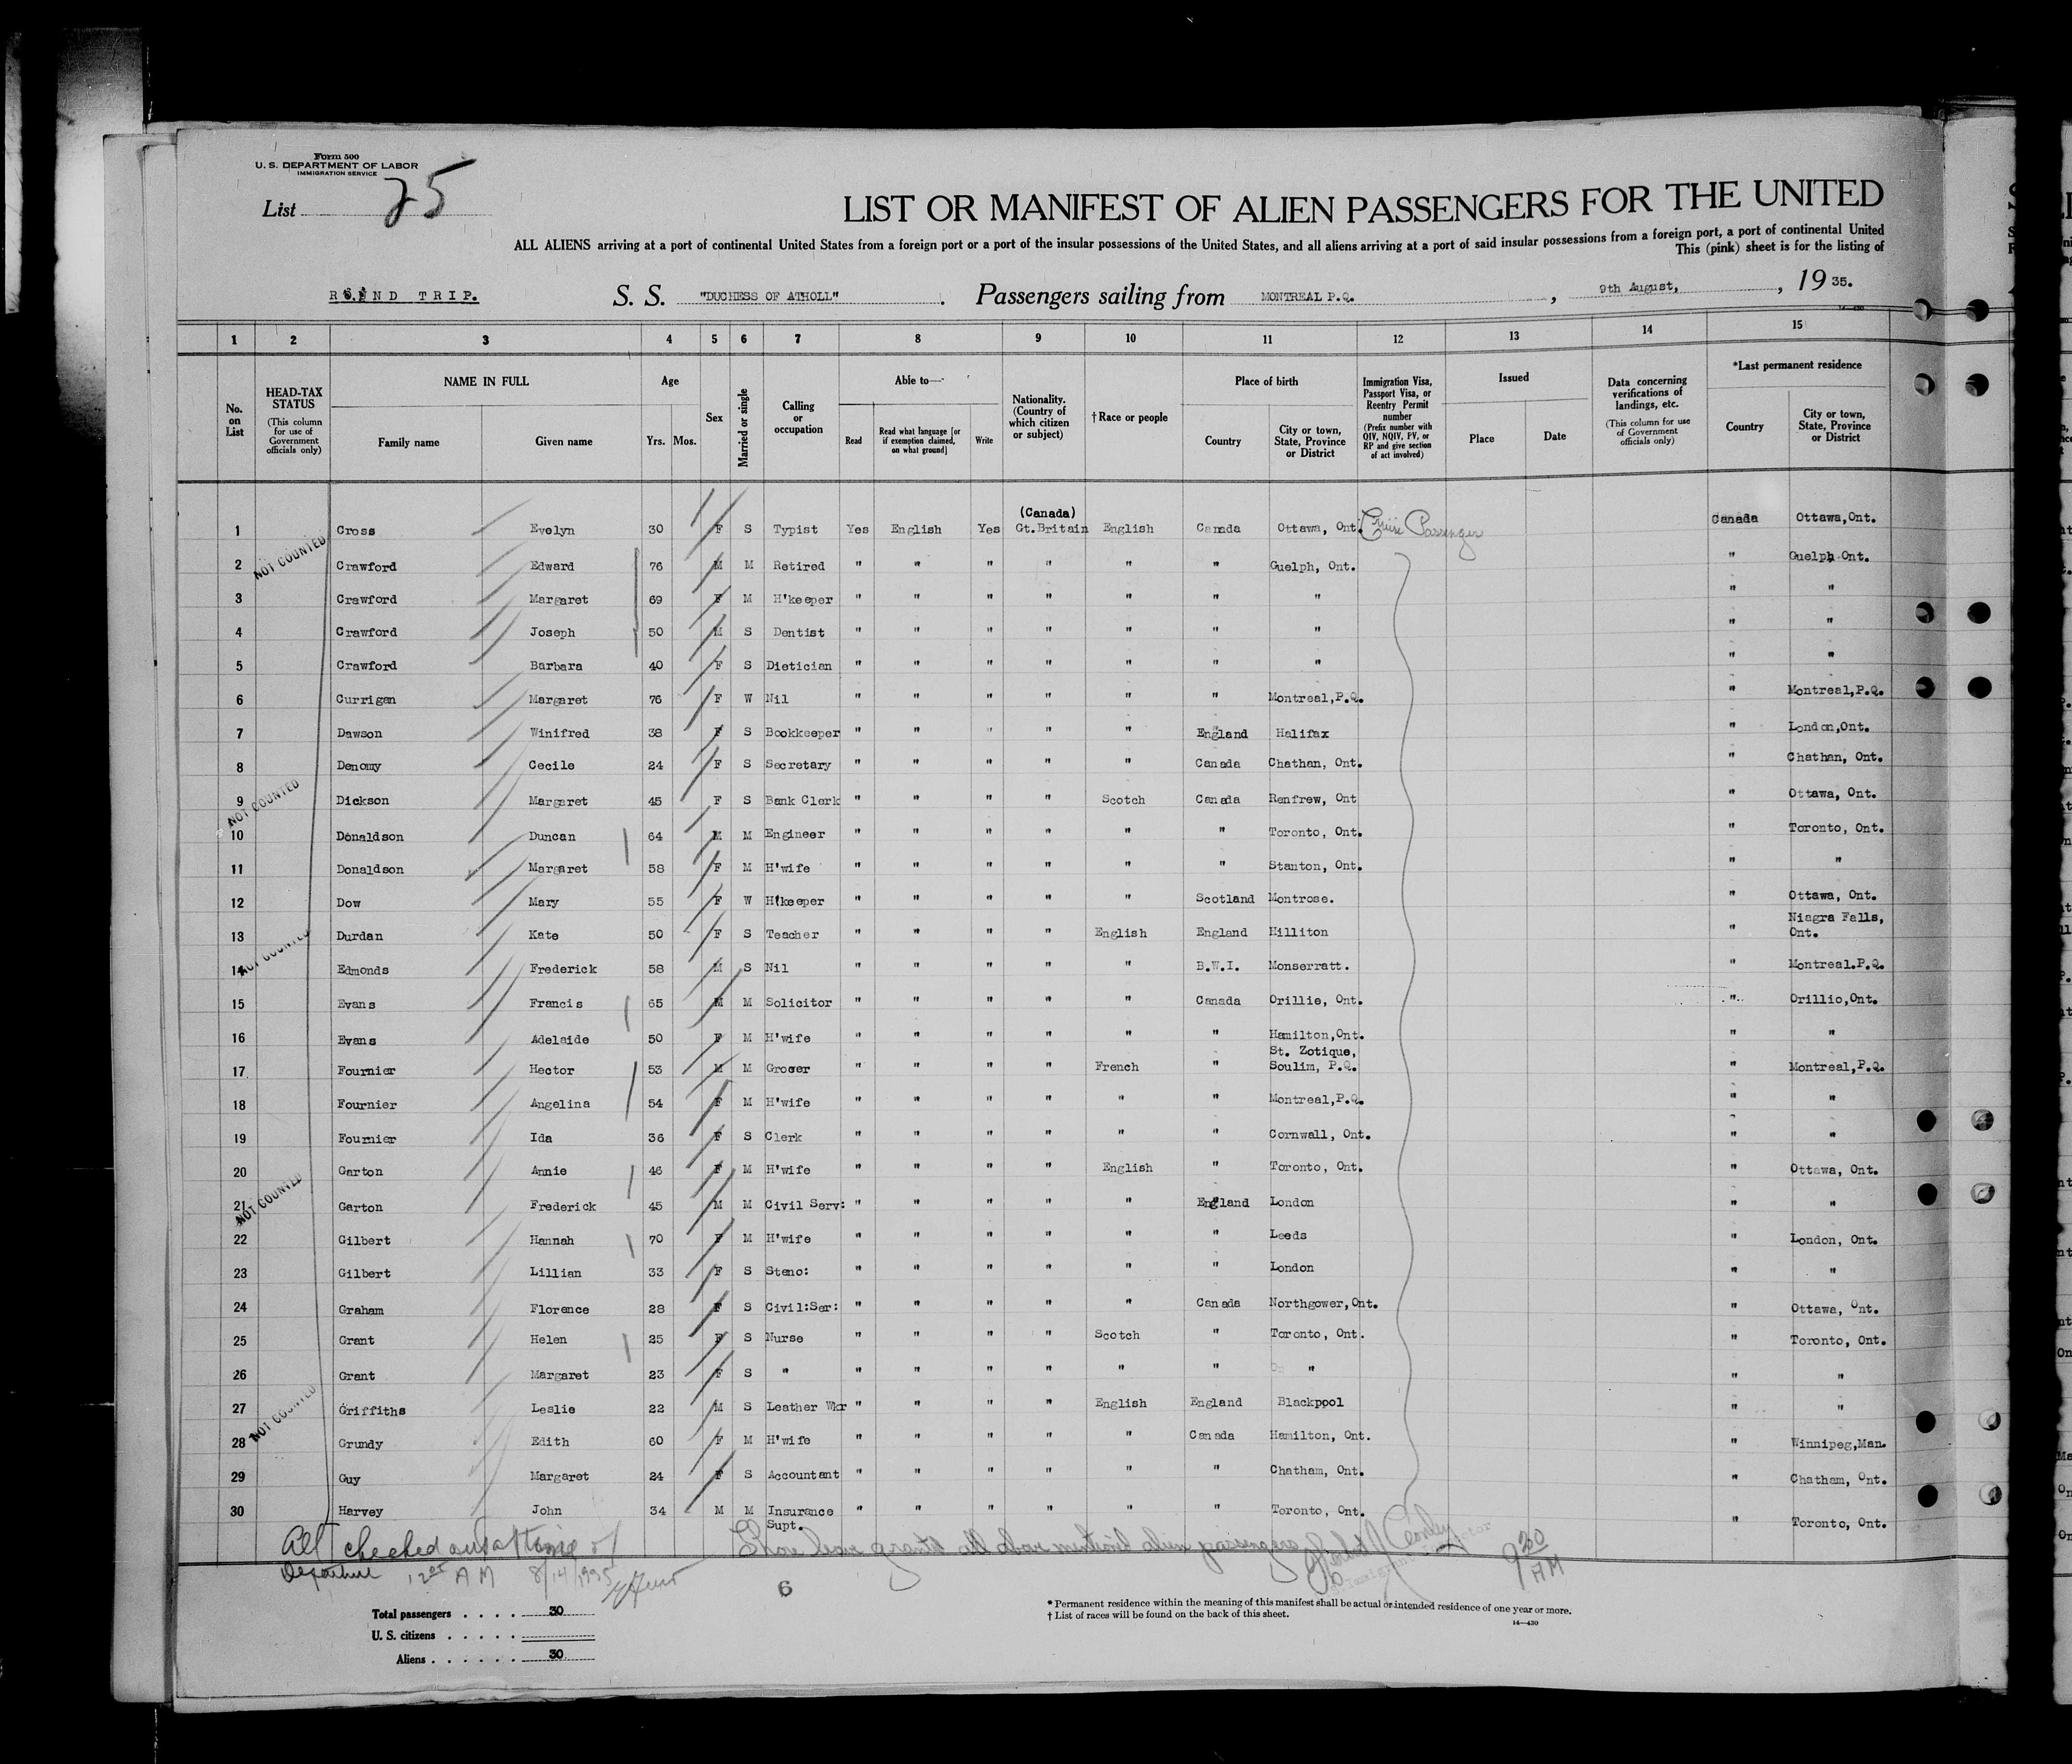 Form 500
U. S. DEPARTMENT OF LABOR
IMMIGRATION SERVICE
List 25
LIST OR MANIFEST OF ALIEN PASSENGERS FOR THE UNITED
ALL ALIENS arriving at a port of continental United States from a foreign port or a port of the insular possessions of the United States, and all aliens arriving at a port of said insular possessions from a foreign port, a port of continental United
This (pink) sheet is for the listing of
TRIP. S. S. "DUCHESS OF ATHOLL". Passengers sailing from MONTREAL P.Q., 9th August, 1935.
1 2 3 4 5 6 7 8 9 10 11 12 13 14 15
No. on List HEAD-TAX STATUS (This column for use of Government officials only) NAME IN FULL Family name Given name Age Yrs. Mos. Sex Married or single Calling or occupation Able to— Read Read what language [or if exemption claimed, on what ground] Write Nationality. (Country of which citizen or subject) †Race or people Place of birth Country City or town, State, Province or District Immigration Visa, Passport Visa, or Reentry Permit number (Prefix number with QIV, NQIV, PV, or RP and give section of act involved) Issued Place Date Data concerning verifications of landings, etc. (This column for use of Government officials only) *Last permanent residence Country City or town, State, Province or District
1 Cross Evelyn 30 F S Typist Yes English Yes (Canada) Gt.Britain English Canada Ottawa, Ont. Cruise Passenger Canada Ottawa,Ont.
NOT COUNTED
2 Crawford Edward 76 M M Retired " " " " " " Guelph, Ont. " Guelph Ont.
3 Crawford Margaret 69 F M H'keeper " " " " " " " " "
4 Crawford Joseph 50 M S Dentist " " " " " " " " "
5 Crawford Barbara 40 F S Dietician " " " " " " " " "
6 Currigan Margaret 76 F W Nil " " " " " " Montreal,P.Q. " Montreal,P.Q.
7 Dawson Winifred 38 F S Bookkeeper " " " " " England Halifax " London,Ont.
8 Denomy Cecile 24 F S Secretary " " " " " Canada Chathan, Ont. " Chathan, Ont.
NOT COUNTED
9 Dickson Margaret 45 F S Bank Clerk " " " " Scotch Canada Renfrew, Ont " Ottawa, Ont.
10 Donaldson Duncan 64 M M Engineer " " " " " " Toronto, Ont. " Toronto, Ont.
11 Donaldson Margaret 58 F M H'wife " " " " " " Stanton, Ont. " "
12 Dow Mary 55 F W H'keeper " " " " " Scotland Montrose. " Ottawa, Ont.
13 Durdan Kate 50 F S Teacher " " " " English England Hilliton " Niagra Falls, Ont.
NOT COUNTED
14 Edmonds Frederick 58 M S Nil " " " " " B.W.I. Monserratt. " Montreal.P.Q.
15 Evans Francis 65 M M Solicitor " " " " " Canada Orillie, Ont. " Orillio,Ont.
16 Evans Adelaide 50 F M H'wife " " " " " " Hamilton,Ont. " "
17 Fournier Hector 53 M M Grocer " " " " French " St. Zotique, Soulim, P.Q. " Montreal,P.Q.
18 Fournier Angelina 54 F M H'wife " " " " " " Montreal,P.Q. " "
19 Fournier Ida 36 F S Clerk " " " " " " Cornwall, Ont. " "
20 Garton Annie 46 F M H'wife " " " " English " Toronto, Ont. " Ottawa, Ont.
NOT COUNTED
21 Garton Frederick 45 M M Civil Serv: " " " " " England London " "
22 Gilbert Hannah 70 F M H'wife " " " " " " Leeds " London, Ont.
23 Gilbert Lillian 33 F S Steno: " " " " " " London " "
24 Graham Florence 28 F S Civil:Ser: " " " " " Canada Northgower,Ont. " Ottawa, Ont.
25 Grant Helen 25 F S Nurse " " " " Scotch " Toronto, Ont. " Toronto, Ont.
26 Grant Margaret 23 F S " " " " " " " " " "
27 Griffiths Leslie 22 M S Leather Wkr " " " " English England Blackpool " "
NOT COUNTED
28 Grundy Edith 60 F M H'wife " " " " " Canada Hamilton, Ont. " Winnipeg,Man.
29 Guy Margaret 24 F S Accountant " " " " " " Chatham, Ont. " Chatham, Ont.
30 Harvey John 34 M M Insurance Supt. " " " " " " Toronto, Ont. " Toronto, Ont.
All checked out at time of
Departure 12 AM 8/14/1935
Shore leave granted all above mentioned alien passengers
9 30 AM
6
Total passengers . . . . 30
U. S. citizens . . . . .
Aliens . . . . . . 30
* Permanent residence within the meaning of this manifest shall be actual or intended residence of one year or more.
† List of races will be found on the back of this sheet.
14—430